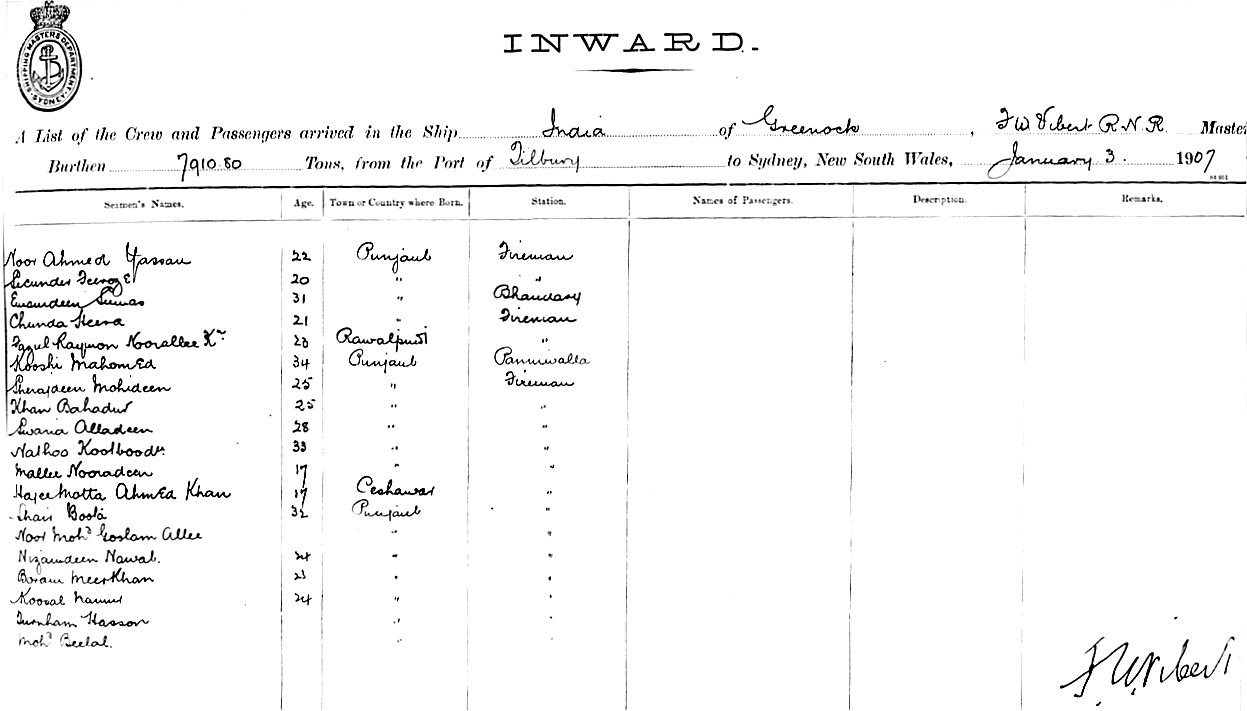 SHIPPING MASTERS DEPARTMENT SYDNEY
INWARD.
A List of the Crew and Passengers arrived in the Ship India of Greenock, F W Vibert R.N.R. Master
Burthen 7910.80 Tons, from the Port of Tilbury to Sydney, New South Wales, January 3. 1907
Seamen's Names. Age. Town or Country where Born. Station. Names of Passengers. Description. Remarks.
Noor Ahmed Hassan 22 Punjaub Fireman
Secunder Feeroze 20 " "
Emamdeen 31 " Bhandary
Chunda Heera 21 " Fireman
Fazul Raymon Noorallee Kn 23 Rawalpindi "
Kooshi Mahomed 34 Punjaub Panniwalla
Sherajdeen Mohideen 25 " Fireman
Khan Bahadur 25 " "
Swaria Alladeen 28 " "
Nathoo Kootboodn 33 " "
Mallee Nooradeen 17 " "
Hajee Motta Ahmed Khan 17 Peshawar "
Shair Boota 32 Punjaub "
Noor Mohd Goolam Allee " "
Nizamdeen Nawab. 24 " "
Buram Meer Khan 23 " "
Koodal 24 " "
Furnham Hasson " "
Mohd Beelal. " "
F W Vibert